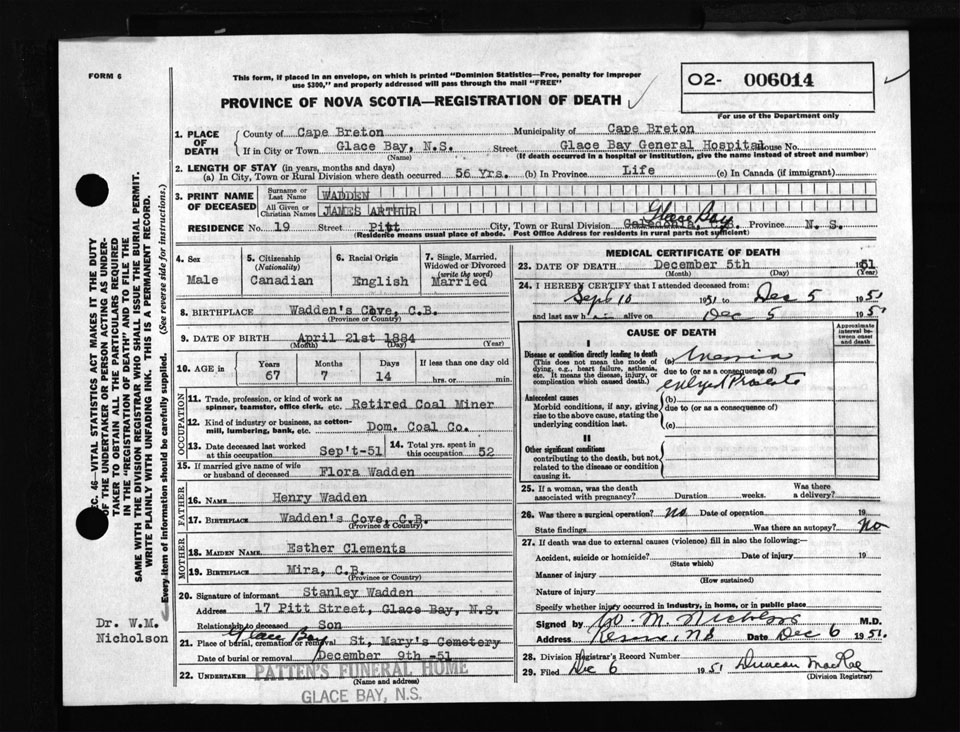 FORM 6
This form, if placed in an envelope, on which is printed "Dominion Statistics—Free, penalty for improper
use $300," and properly addressed will pass through the mail "FREE"
O2- 006014
PROVINCE OF NOVA SCOTIA—REGISTRATION OF DEATH
For use of the Department only
1. PLACE OF DEATH
County of Cape Breton Municipality of Cape Breton
If in City or Town Glace Bay, N.S. Street Glace Bay General Hospital House No.
(Name) (If death occurred in a hospital or institution, give the name instead of street and number)
2. LENGTH OF STAY (in years, months and days)
(a) In City, Town or Rural Division where death occurred 56 Yrs. (b) In Province Life (c) In Canada (if immigrant)
3. PRINT NAME OF DECEASED
Surname or Last Name WADDEN
All Given or Christian Names JAMES ARTHUR
Glace Bay
RESIDENCE No. 19 Street Pitt City, Town or Rural Division Caledonia, C.B. Province N. S.
(Residence means usual place of abode. Post Office Address for residents in rural parts not sufficient)
4. Sex
Male
5. Citizenship (Nationality)
Canadian
6. Racial Origin
English
7. Single, Married, Widowed or Divorced (write the word)
Married
8. BIRTHPLACE Wadden's Cove, C.B.
(Province or Country)
9. DATE OF BIRTH April 21st 1884
(Month) (Day) (Year)
10. AGE in Years Months Days If less than one day old
67 7 14 hrs. or min.
OCCUPATION
11. Trade, profession, or kind of work as
spinner, teamster, office clerk, etc. Retired Coal Miner
12. Kind of industry or business, as cotton-
mill, lumbering, bank, etc. Dom. Coal Co.
13. Date deceased last worked
at this occupation Sep't-51
14. Total yrs. spent in
this occupation 52
15. If married give name of wife
or husband of deceased Flora Wadden
FATHER
16. NAME Henry Wadden
17. BIRTHPLACE Wadden's Cove, C.B.
(Province or Country)
MOTHER
18. MAIDEN NAME Esther Clements
19. BIRTHPLACE Mira, C.B.
(Province or Country)
20. Signature of informant Stanley Wadden
Address 17 Pitt Street, Glace Bay, N.S.
Relationship to deceased Son
Glace Bay
21. Place of burial, cremation or removal St, Mary's Cemetery
Date of burial or removal December 9th -51
22. UNDERTAKER PATTEN'S FUNERAL HOME
(Name and address)
GLACE BAY, N.S.
MEDICAL CERTIFICATE OF DEATH
23. DATE OF DEATH December 5th 1951
(Month) (Day) (Year)
24. I HEREBY CERTIFY that I attended deceased from:
Sept 10 1951 to Dec 5 1951
and last saw him alive on Dec 5 1951
CAUSE OF DEATH
Approximate interval between onset and death
I
Disease or condition directly leading to death
(This does not mean the mode of
dying, e.g., heart failure, asthenia,
etc. It means the disease, injury, or
complication which caused death.)
(a)
due to (or as a consequence of)
Antecedent causes
Morbid conditions, if any, giving
rise to the above cause, stating the
underlying condition last.
(b)
due to (or as a consequence of)
(c)
II
Other significant conditions
contributing to the death, but not
related to the disease or condition
causing it.
25. If a woman, was the death
associated with pregnancy? Duration weeks. Was there
a delivery?
26. Was there a surgical operation? No Date of operation 19
State findings Was there an autopsy? No
27. If death was due to external causes (violence) fill in also the following:—
Accident, suicide or homicide? Date of injury 19
(State which)
Manner of injury
(How sustained)
Nature of injury
Specify whether injury occurred in industry, in home, or in public place
Signed by W. M. Nicholson M.D.
Address Reserve, NS Date Dec 6 1951.
28. Division Registrar's Record Number
29. Filed Dec 6 1951 Duncan MacRae
(Division Registrar)
SEC. 46—VITAL STATISTICS ACT MAKES IT THE DUTY
OF THE UNDERTAKER OR PERSON ACTING AS UNDER-
TAKER TO OBTAIN ALL THE PARTICULARS REQUIRED
IN THE "REGISTRATION OF DEATH" AND TO FILE THE
SAME WITH THE DIVISION REGISTRAR WHO SHALL ISSUE THE BURIAL PERMIT.
WRITE PLAINLY WITH UNFADING INK. THIS IS A PERMANENT RECORD.
Every item of information should be carefully supplied. (See reverse side for instructions.)
Dr. W.M.
Nicholson